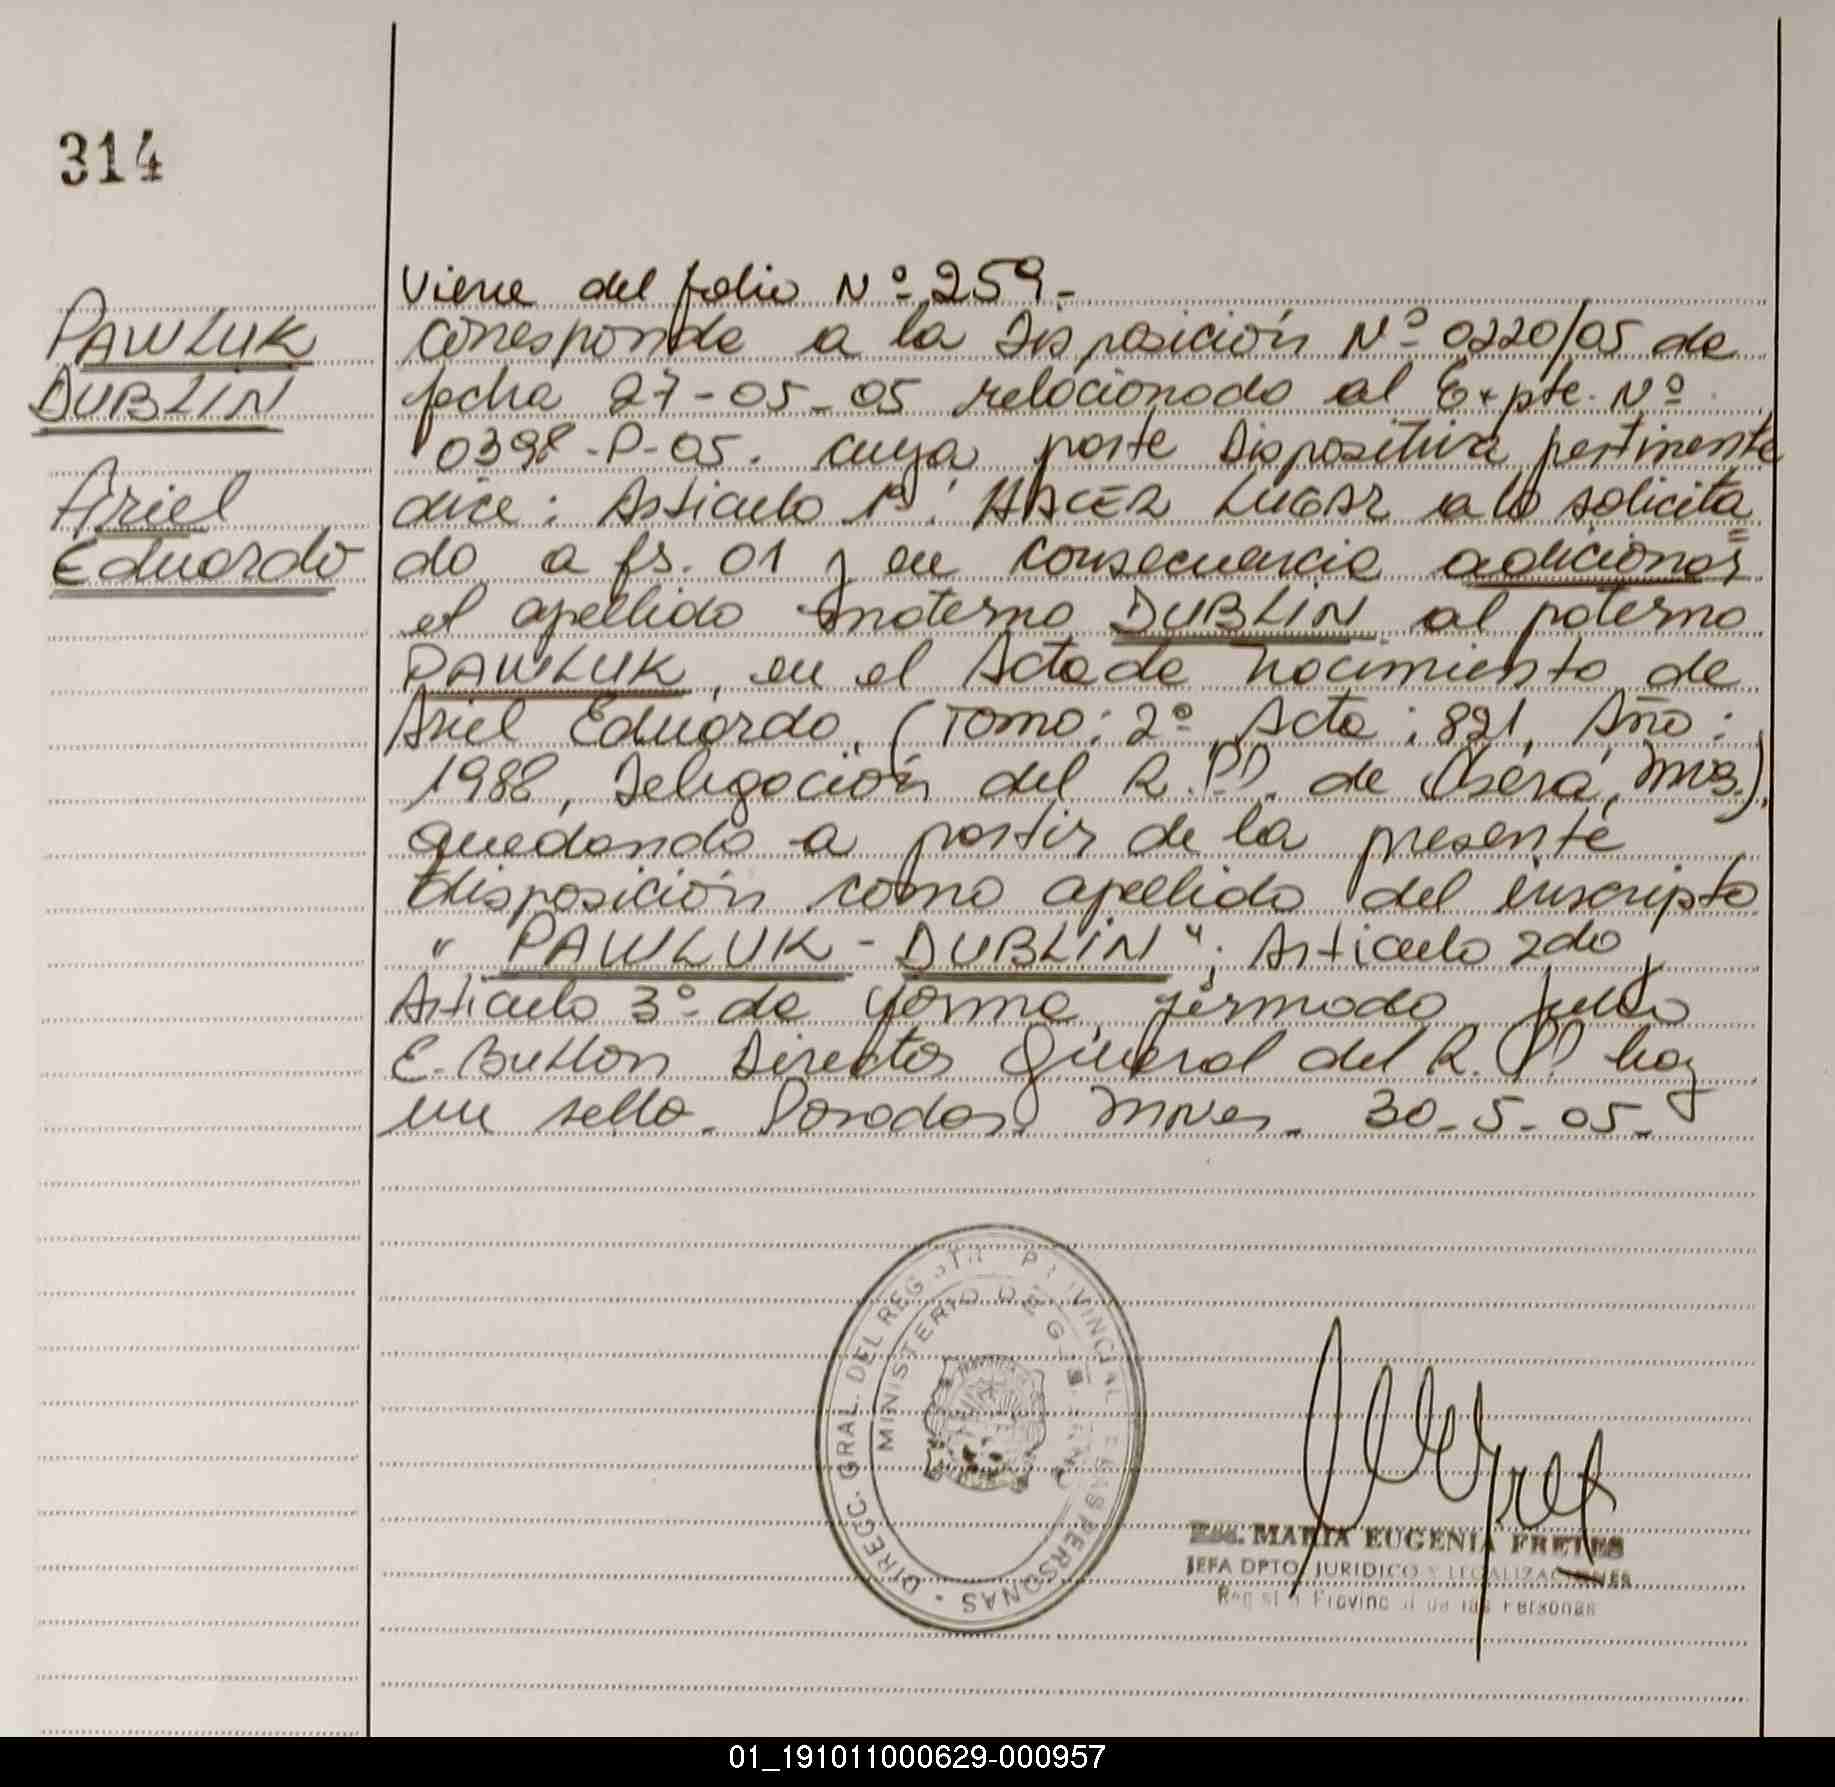 314
PAWLUK
DUBLIN
Ariel
Eduardo
Viene del folio Nº 259-
Corresponde a la Disposición Nº 0220/05 de
fecha 27-05-05 relacionado al Expte. Nº
0398-P-05. cuya parte Dispositiva pertinente
dice: Articulo 1º: HACER LUGAR a lo solicita
do a fs. 01 y en consecuencia adicionar
el apellido materno DUBLIN al paterno
PAWLUK, en el Acta de nacimiento de
Ariel Eduardo, (Tomo: 2º, Acta: 821, Año:
1988, Delegación del R.P.P. de Oberá, Mnes.),
quedando a partir de la presente
disposición como apellido del inscripto
" PAWLUK - DUBLIN"; Articulo 2do y
Articulo 3º de forma, firmado Julio
E. Button Director General del R.P.P. hay
un sello. Posadas, Mnes. 30-5-05-
DIRECC. GRAL. DEL REGISTR PROVINCIAL PERSONAS
MINISTERIO DE G
Esc. MARIA EUGENIA FRETES
JEFA DPTO. JURIDICO Y LEGALIZACIONES
Registro Provincial de las Personas
01_191011000629-000957